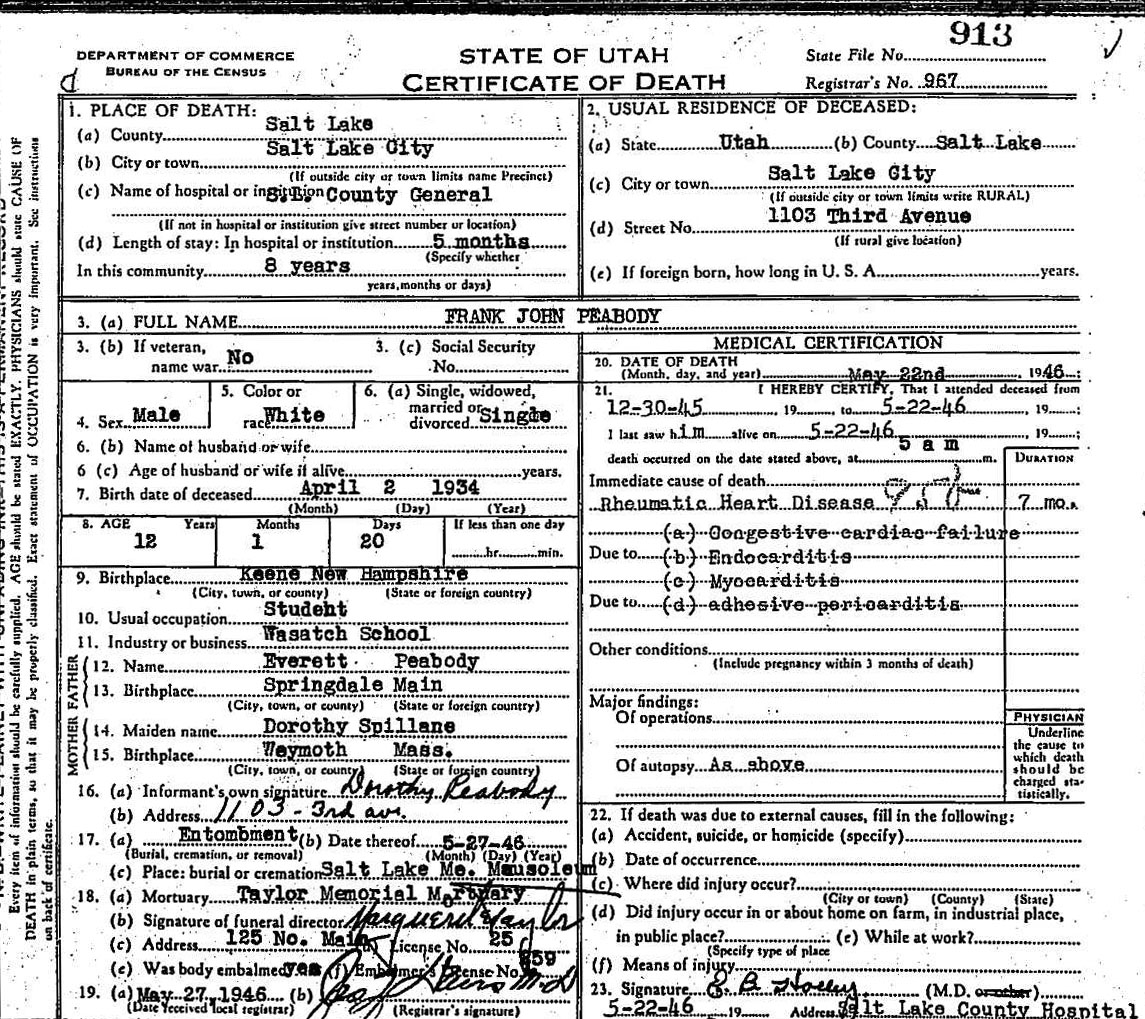 913
DEPARTMENT OF COMMERCE
BUREAU OF THE CENSUS
STATE OF UTAH
CERTIFICATE OF DEATH
State File No.
Registrar's No. 967
1. PLACE OF DEATH:
(a) County Salt Lake
(b) City or town Salt Lake City
(If outside city or town limits name Precinct)
(c) Name of hospital or institution S.L. County General
(If not in hospital or institution give street number or location)
(d) Length of stay: In hospital or institution 5 months
(Specify whether
In this community 8 years
years, months or days)
2. USUAL RESIDENCE OF DECEASED:
(a) State Utah (b) County Salt Lake
(c) City or town Salt Lake City
(If outside city or town limits write RURAL)
(d) Street No. 1103 Third Avenue
(If rural give location)
(e) If foreign born, how long in U. S. A. years.
3. (a) FULL NAME FRANK JOHN PEABODY
3. (b) If veteran, name war No
3. (c) Social Security No.
4. Sex Male
5. Color or race White
6. (a) Single, widowed, married or divorced Single
6. (b) Name of husband or wife
6 (c) Age of husband or wife if alive years.
7. Birth date of deceased April 2 1934
(Month) (Day) (Year)
8. AGE Years Months Days If less than one day
12 1 20 hr. min.
9. Birthplace Keene New Hampshire
(City, town, or county) (State or foreign country)
10. Usual occupation Student
11. Industry or business Wasatch School
FATHER
12. Name Everett Peabody
13. Birthplace Springdale Main
(City, town, or county) (State or foreign country)
MOTHER
14. Maiden name Dorothy Spillane
15. Birthplace Weymoth Mass.
(City, town, or county) (State or foreign country)
16. (a) Informant's own signature Dorothy Peabody
(b) Address 1103 - 3rd ave.
17. (a) Entombment (b) Date thereof 5-27-46
(Burial, cremation, or removal) (Month) (Day) (Year)
(c) Place: burial or cremation Salt Lake Me. Mausoleum
18. (a) Mortuary Taylor Memorial Mortuary
(b) Signature of funeral director Marguerite Taylor
(c) Address 125 No. Main License No. 25
(e) Was body embalmed yes (f) Embalmer's License No. 859
19. (a) May 27, 1946 (b) M.D.
(Date received local registrar) (Registrar's signature)
MEDICAL CERTIFICATION
20. DATE OF DEATH
(Month, day, and year) May 22nd, 1946;
21. I HEREBY CERTIFY, That I attended deceased from
12-30-45, 19 to 5-22-46, 19;
I last saw him alive on 5-22-46, 19;
death occurred on the date stated above, at 5 am m.
DURATION
Immediate cause of death
Rheumatic Heart Disease 7 mo.
(a) Congestive cardiac failure
Due to (b) Endocarditis
(c) Myocarditis
Due to (d) adhesive pericarditis
Other conditions
(Include pregnancy within 3 months of death)
Major findings:
Of operations
Of autopsy As above
PHYSICIAN
Underline
the cause to
which death
should be
charged sta-
tistically.
22. If death was due to external causes, fill in the following:
(a) Accident, suicide, or homicide (specify)
(b) Date of occurrence
(c) Where did injury occur?
(City or town) (County) (State)
(d) Did injury occur in or about home on farm, in industrial place,
in public place? (e) While at work?
(Specify type of place
(f) Means of injury
23. Signature (M.D. or other)
5-22-46 19 Address Salt Lake County Hospital
Every item of information should be carefully supplied. AGE should be stated EXACTLY. PHYSICIANS should state CAUSE OF
DEATH in plain terms, so that it may be properly classified. Exact statement of OCCUPATION is very important. See instructions
on back of certificate.